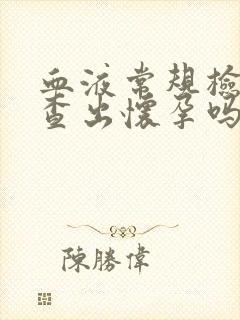 血液常規檢
查出懷孕嗎
陳勝偉